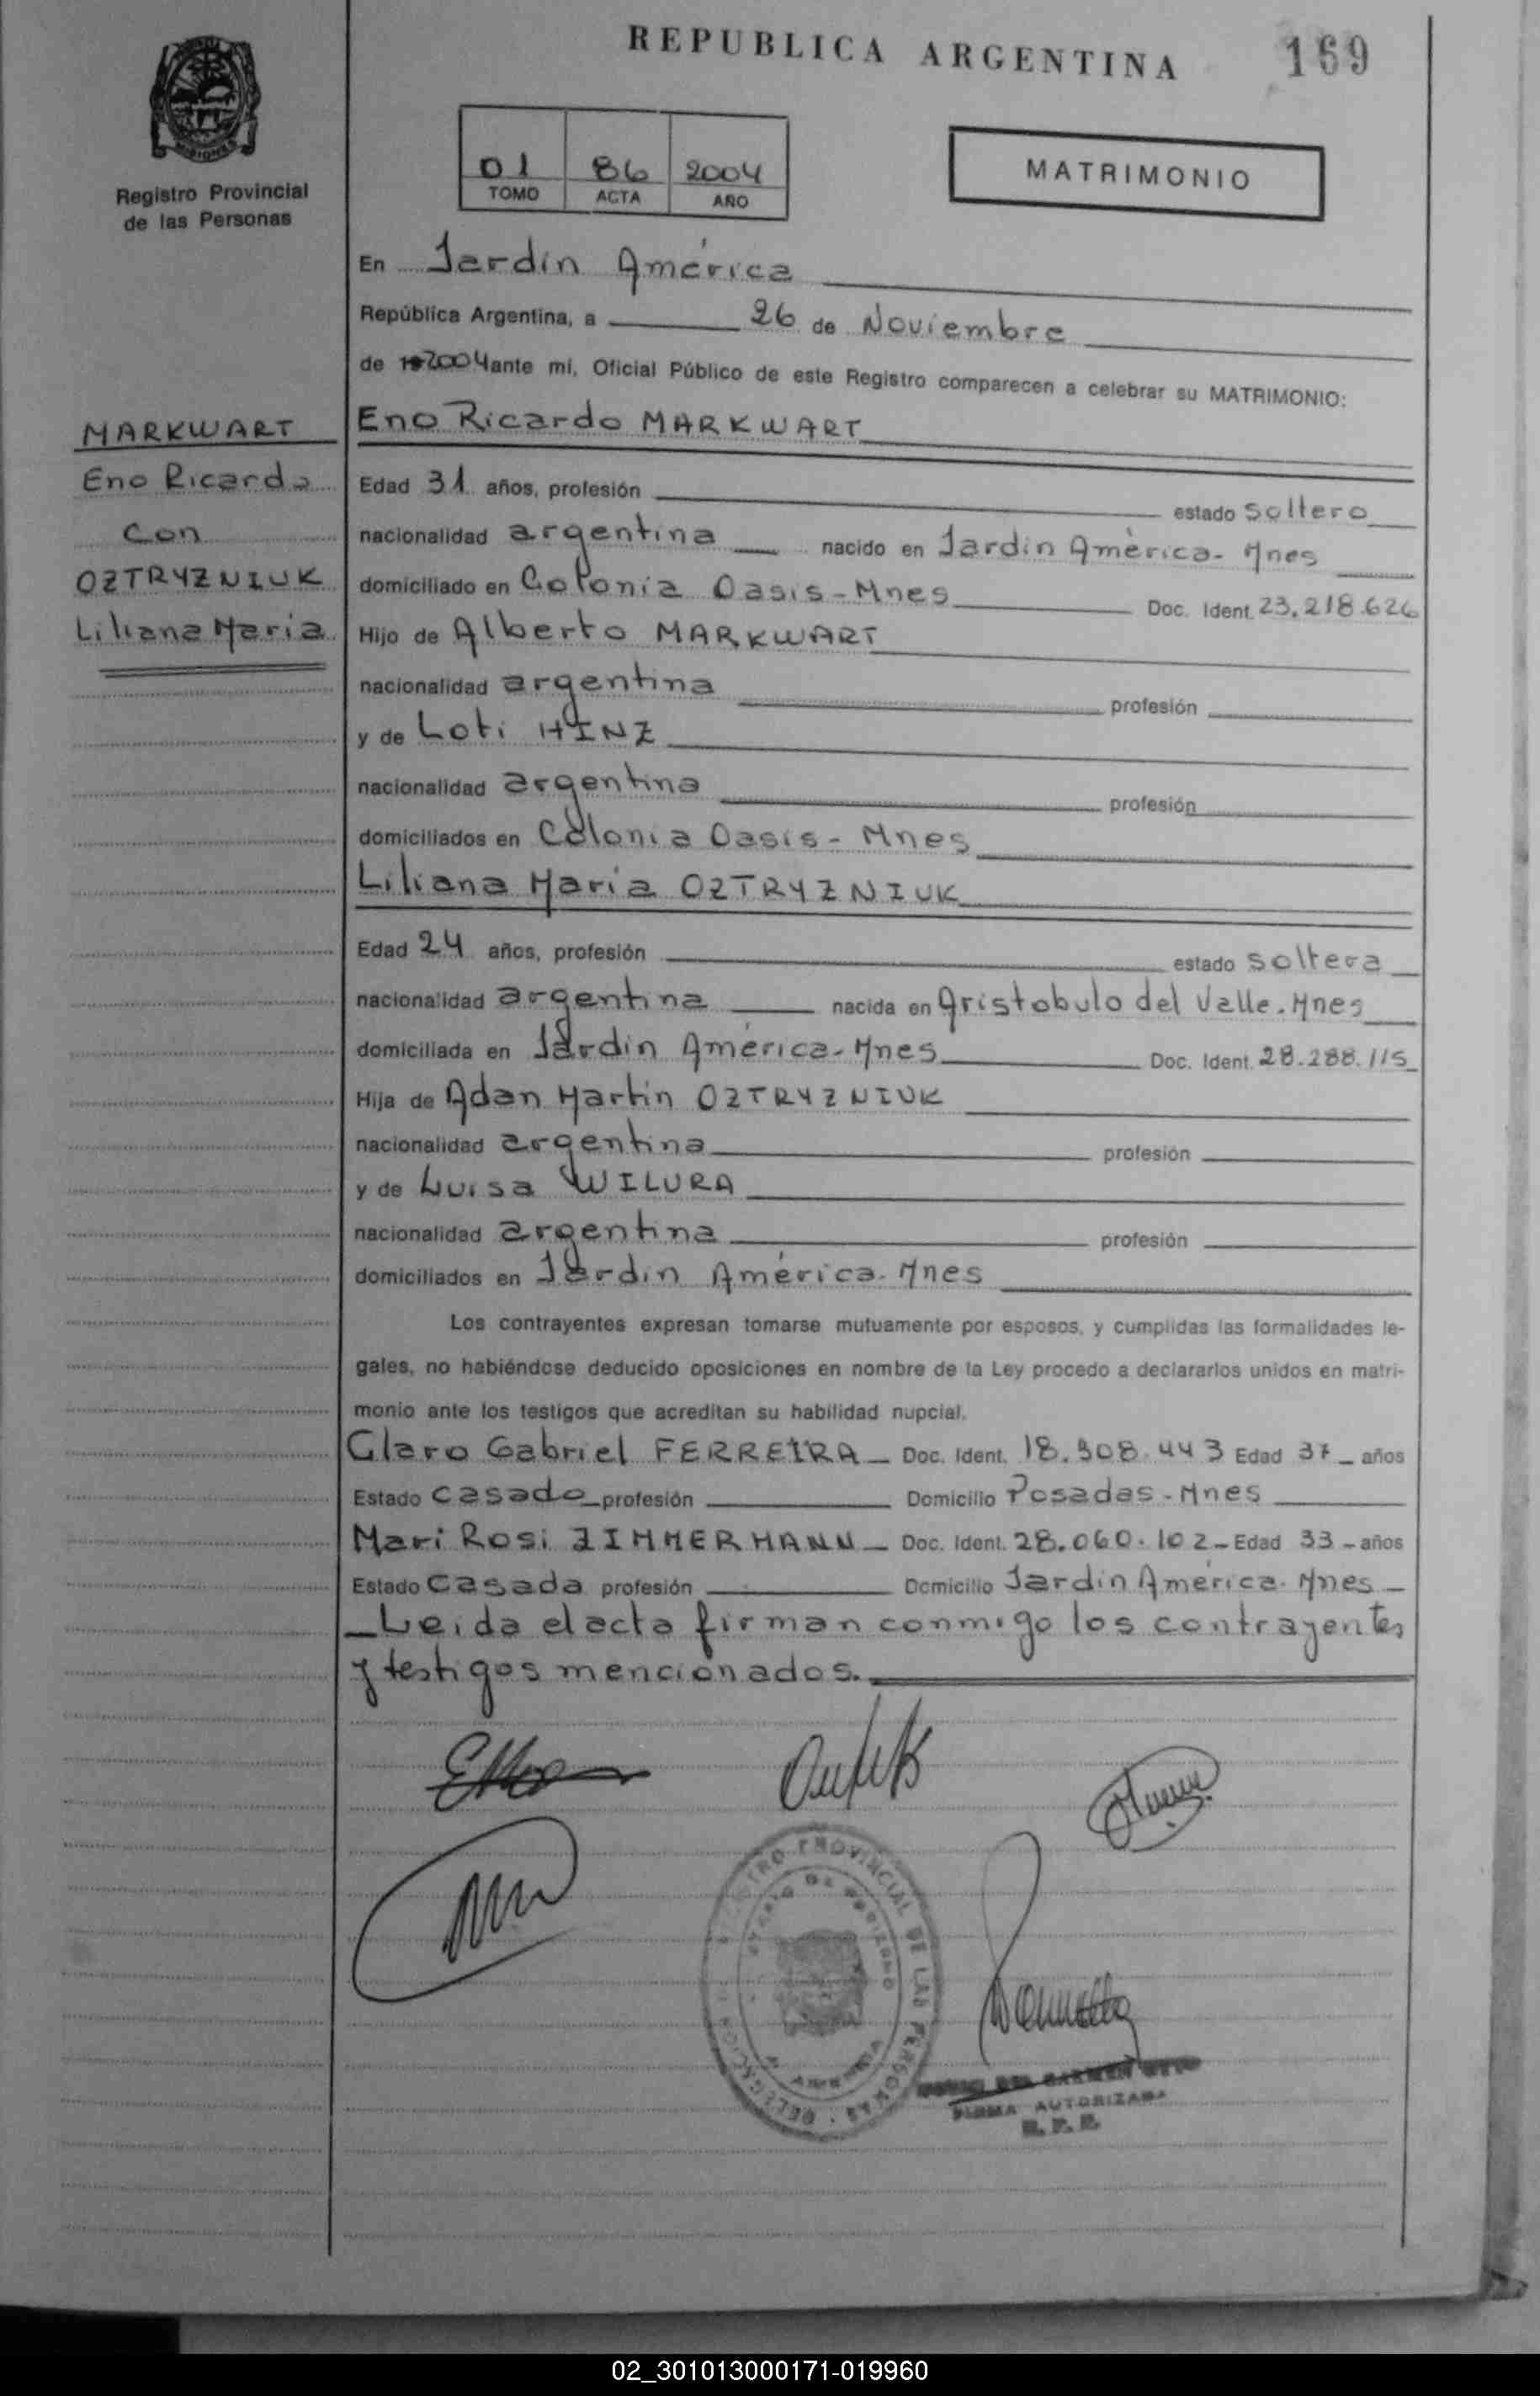 REPUBLICA ARGENTINA
169
MISIONES
Registro Provincial
de las Personas
01 86 2004
TOMO ACTA AÑO
MATRIMONIO
En Jardín América
República Argentina, a 26 de Noviembre
de 19 2004 ante mí, Oficial Público de este Registro comparecen a celebrar su MATRIMONIO:
MARKWART
Eno Ricardo
con
OZTRYZNIUK
Liliana María
Eno Ricardo MARKWART
Edad 31 años, profesión estado soltero
nacionalidad argentina nacido en Jardín América- Mnes
domiciliado en Colonia Oasis - Mnes Doc. Ident. 23.218.626
Hijo de Alberto MARKWART
nacionalidad argentina profesión
y de Loti HINZ
nacionalidad argentina profesión
domiciliados en Colonia Oasis - Mnes
Liliana María OZTRYZNIUK
Edad 24 años, profesión estado soltera
nacionalidad argentina nacida en Aristobulo del Valle. Mnes
domiciliada en Jardín América- Mnes Doc. Ident. 28.288.115
Hija de Adan Martín OZTRYZNIUK
nacionalidad argentina profesión
y de Luisa WILURA
nacionalidad argentina profesión
domiciliados en Jardín América. Mnes
Los contrayentes expresan tomarse mutuamente por esposos, y cumplidas las formalidades le-
gales, no habiéndose deducido oposiciones en nombre de la Ley procedo a declararlos unidos en matri-
monio ante los testigos que acreditan su habilidad nupcial.
Claro Gabriel FERREIRA Doc. Ident. 18.308.443 Edad 37 años
Estado casado profesión Domicilio Posadas - Mnes
Mari Rosi ZIMMERMANN Doc. Ident. 28.060.102 - Edad 33 - años
Estado Casada profesión Domicilio Jardín América. Mnes
Leida el acta firman conmigo los contrayentes
y testigos mencionados.
REGISTRO PROVINCIAL DE LAS PERSONAS
DEL CARMEN
FIRMA AUTORIZADA
R. P. P.
02_301013000171-019960